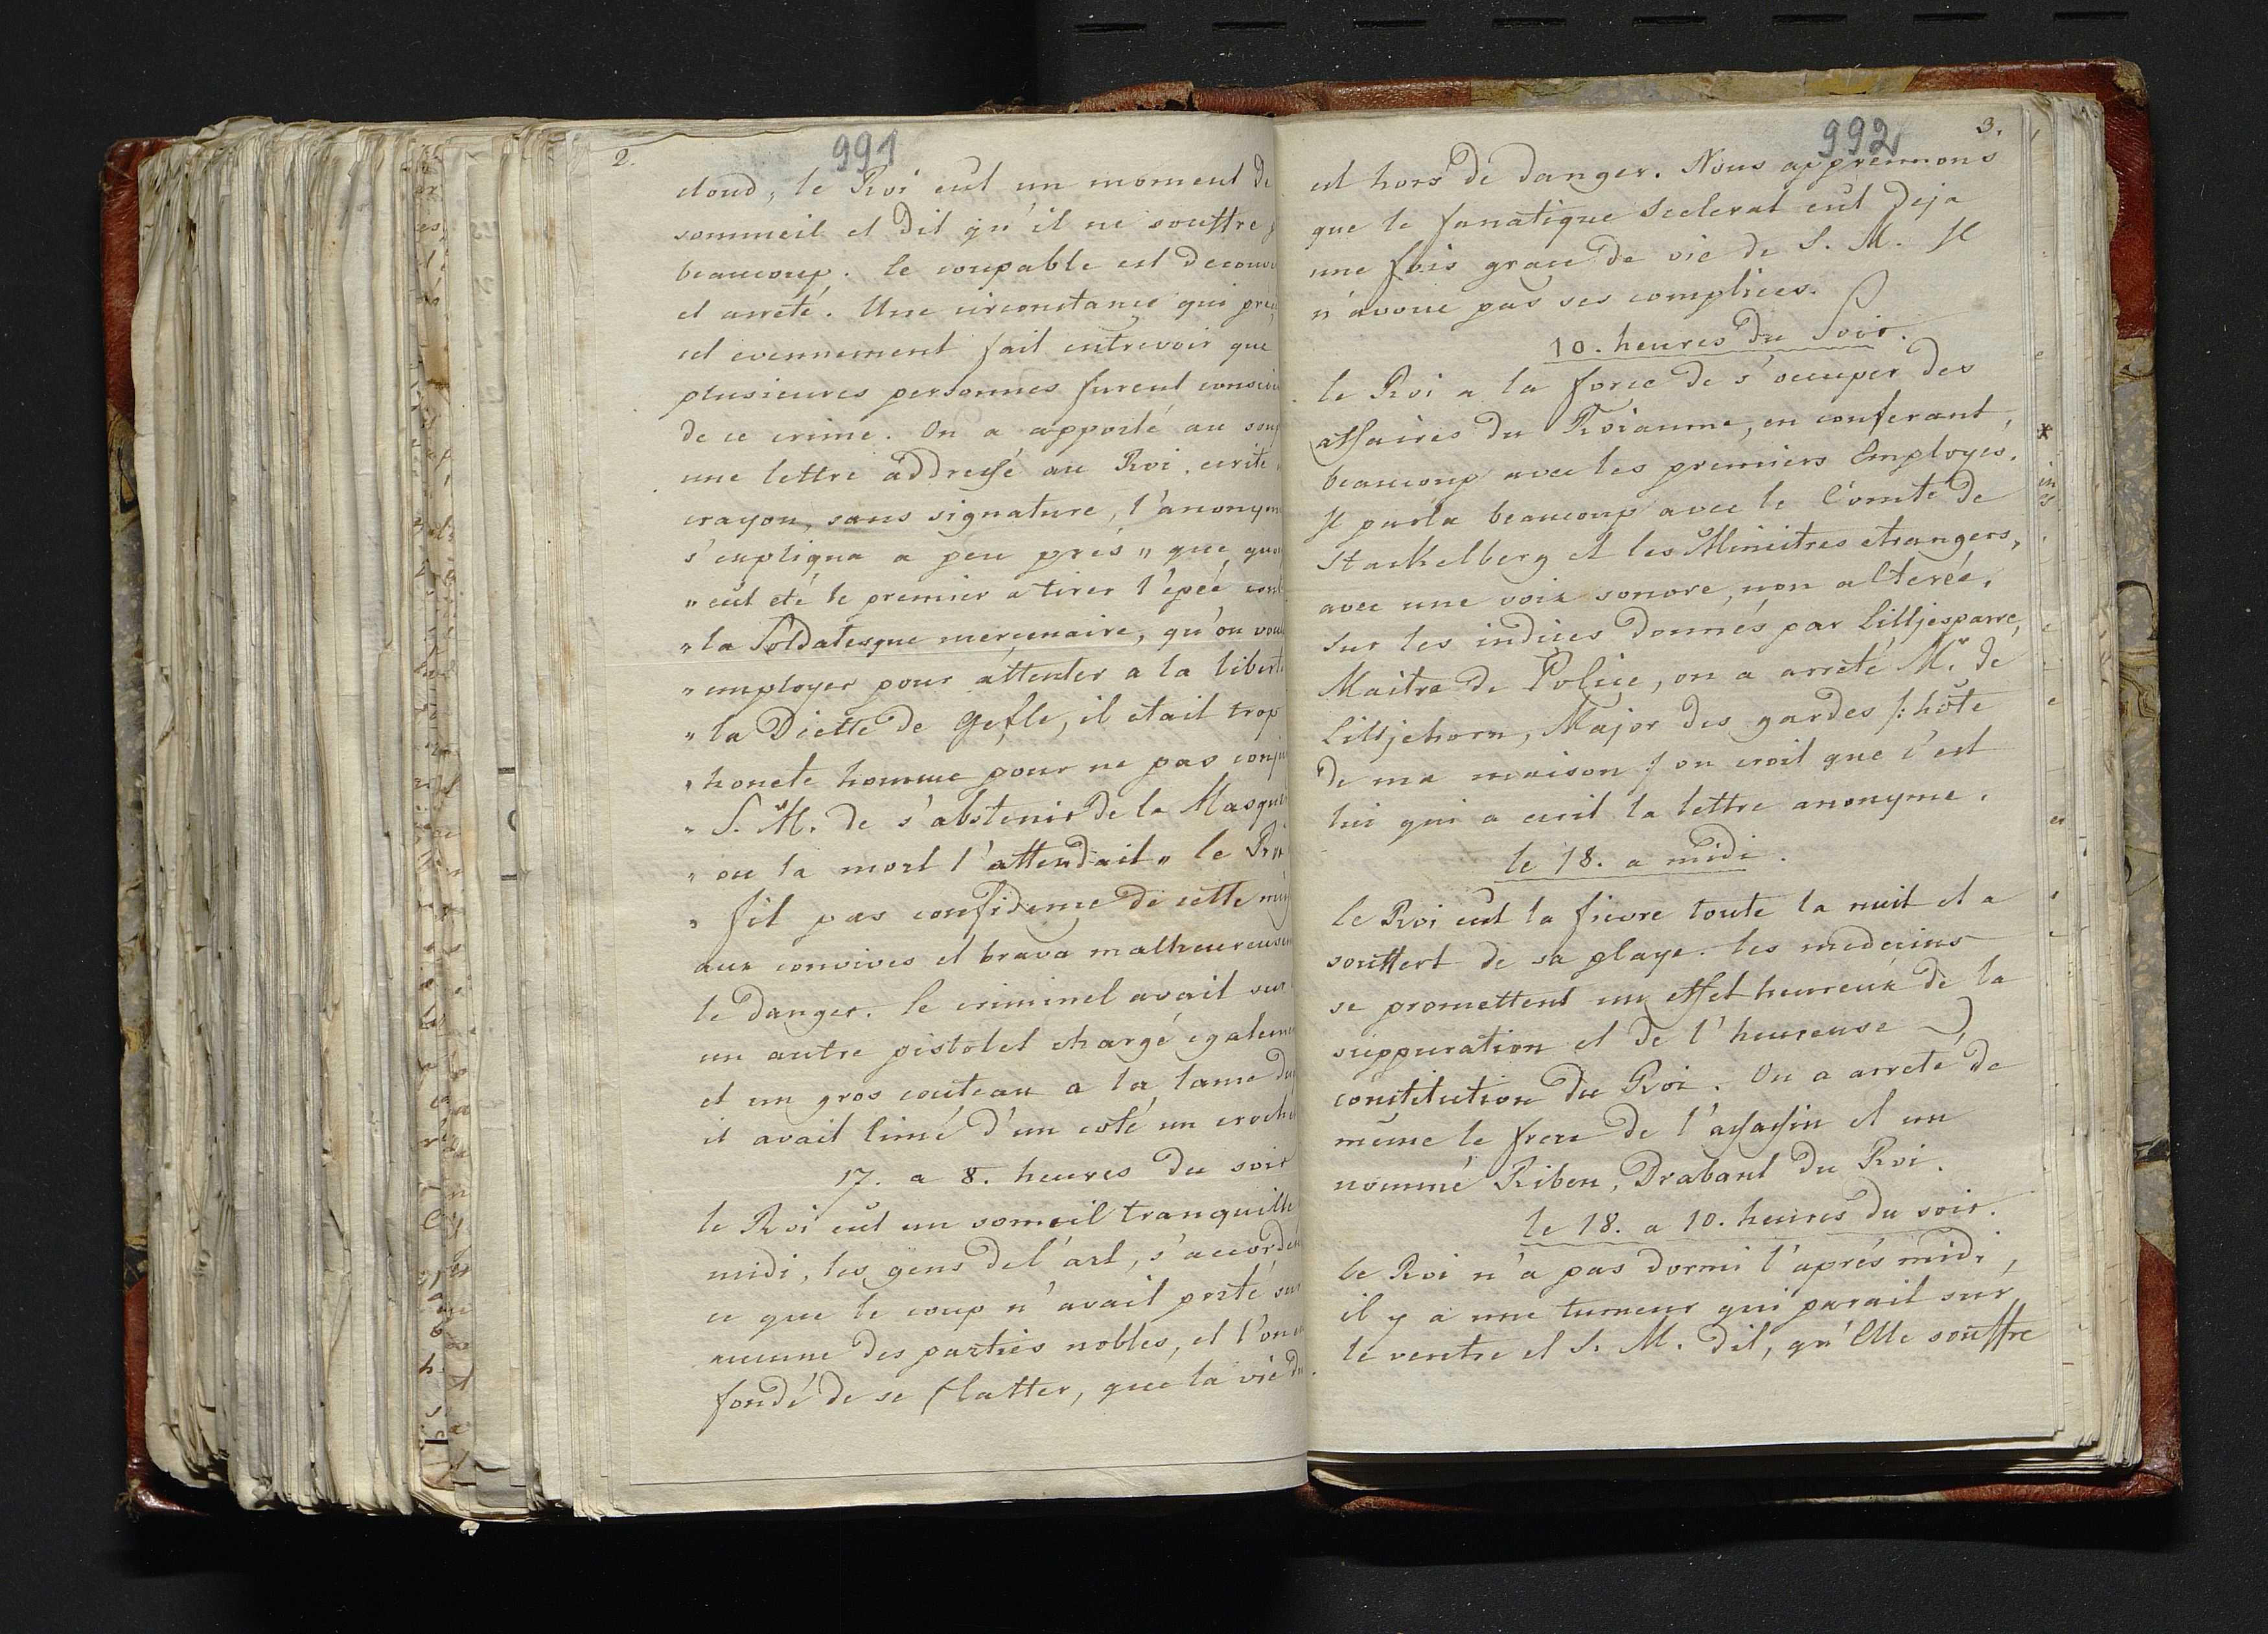 2.
991
cloud, le Roi eut un moment de
sommeil et dit qu'il ne souffre
beaucoup. le coupable est decouv
et arreté. Une circonstance qui prec
cet evennement fait entrevoir que
plusieures personnes furent consci
de ce crime. On a apporté au soup
une lettre addressé au Roi, ecrite
crayon, sans signature, l'anonym
s'expliqua a peu prés „ que, quoi
„ eut eté le premier a tirer l'épeé cont
„ la Soldatesque mercenaire, qu'on voul
„ employer pour attenter a la liberté
„ la Diette de Gefle, il etait trop
„ honete homme pour ne pas conju
„ S. M. de s'abstenir de la Masque
„ ou la mort l'attendait „ le Roi
„ fit pas confidence de cette
aux convives et brava malheureuse
le danger. le criminel avait sur
un autre pistolet chargé egaleme
et un gros couteau a la lame du
il avait limé d'un coté un croche
17. a 8. heures du soir
le Roi eut un someil tranquille
midi, les gens de l'art, s'accorde
ce que le coup n'avait porté sur
aucune des parties nobles, et l'on
fondé de se flatter, que la vie du
992
3.
est hors de danger. Nous apprennons
que le fanatique scelerat eut deja
une fois grace de vie de S. M. Il
n'avoue pas ses complices.
10. heures du Soir.
le Roi a la force de s'occuper des
affaires du Roiaume, en conferant
beaucoup avec les premiers Employés.
Il parla beaucoup avec le Comte de
Stackelberg et les Ministres etrangers,
avec une voix sonore, non alterée.
Sur les indices donnés par Lilljesparre,
Maitre de Police, on a arreté Mr. de
Lilljehorn, Major des gardes /: hôte
de ma maison :/ on croit que c'est
lui qui a ecrit la lettre anonyme.
le 18. a midi.
le Roi eut la fievre toute la nuit et a
souffert de sa playe. les medecins
se promettent un effet heureux de la
suppuration et de l'heureuse
constitution du Roi. On a arreté de
même le frere de l'assassin et un
nommé Riben, Drabant du Roi.
le 18. a 10. heures du soir.
le Roi n'a pas dormi l'aprés midi,
il y a une tumeur qui parait sur
le ventre et S. M. dit, qu'Elle souffre